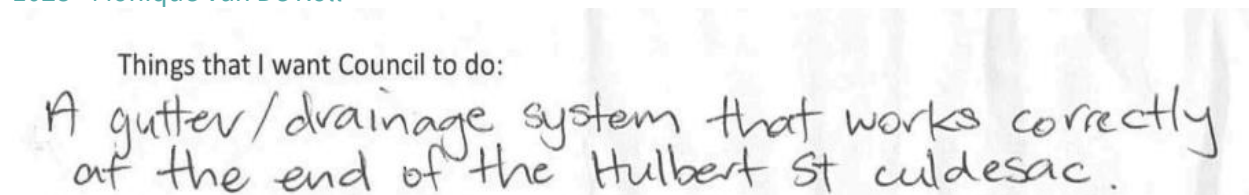 Things that I want Council to do:
A gutter/drainage system that works correctly
at the end of the Hulbert St culdesac.